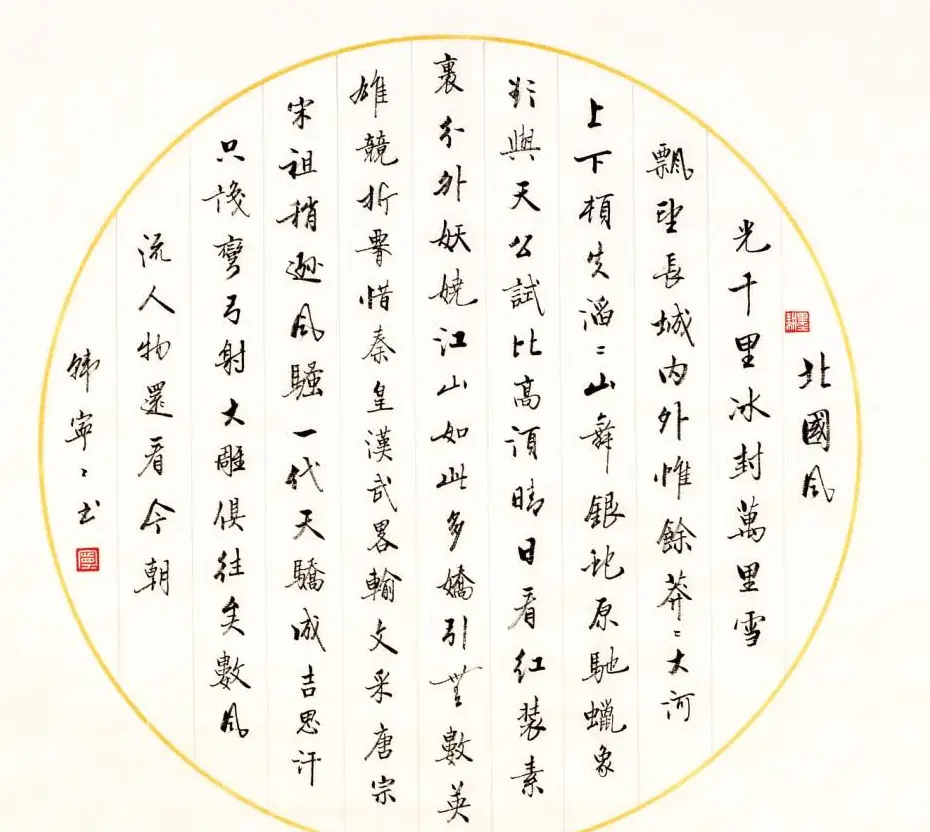 北國風
光千里冰封萬里雪
飄望長城内外惟餘莽〻大河
上下頓失滔〻山舞銀蛇原馳蠟象
欲與天公試比高須晴日看紅裝素
裹分外妖嬈江山如此多嬌引無數英
雄競折腰惜秦皇漢武畧輸文采唐宗
宋祖稍遜風騷一代天驕成吉思汗
只識彎弓射大雕俱往矣數風
流人物還看今朝
韓寧〻书
寧